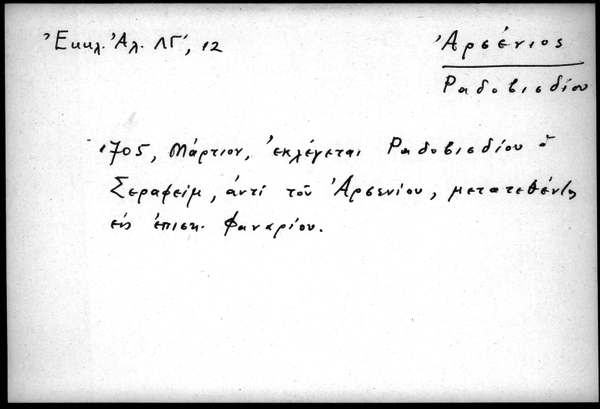 Ἐκκλ. Ἀλ. ΛΓ΄, 12
Ἀρσένιος
Ραδοβισδίου
1705, Μάρτιον, ἐκλέγεται Ραδοβισδίου ὁ
Σεραφείμ, ἀντί τοῦ Ἀρσενίου, μετατεθέντος
εἰς ἐπισκ. Φαναρίου.